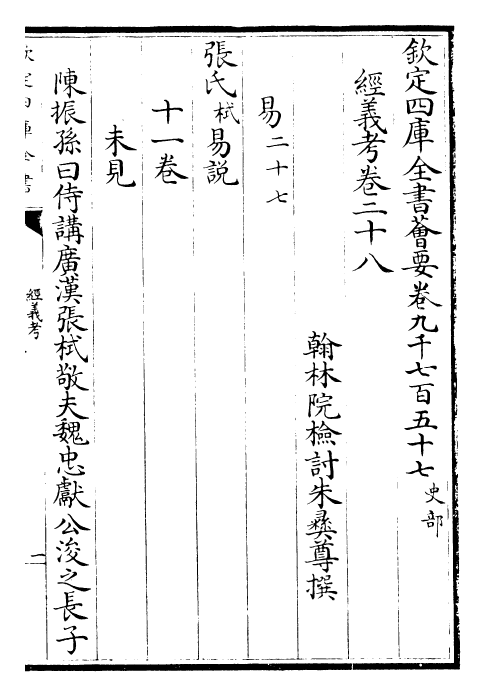 欽定四庫全書薈要卷九千七百五十七 史部
經義考卷二十八
翰林院檢討朱彝尊撰
易二十七
張氏栻易説
十一卷
未見
陳振孫曰侍講廣漢張栻敬夫魏忠獻公浚之長子
欽定四庫全書
經義考